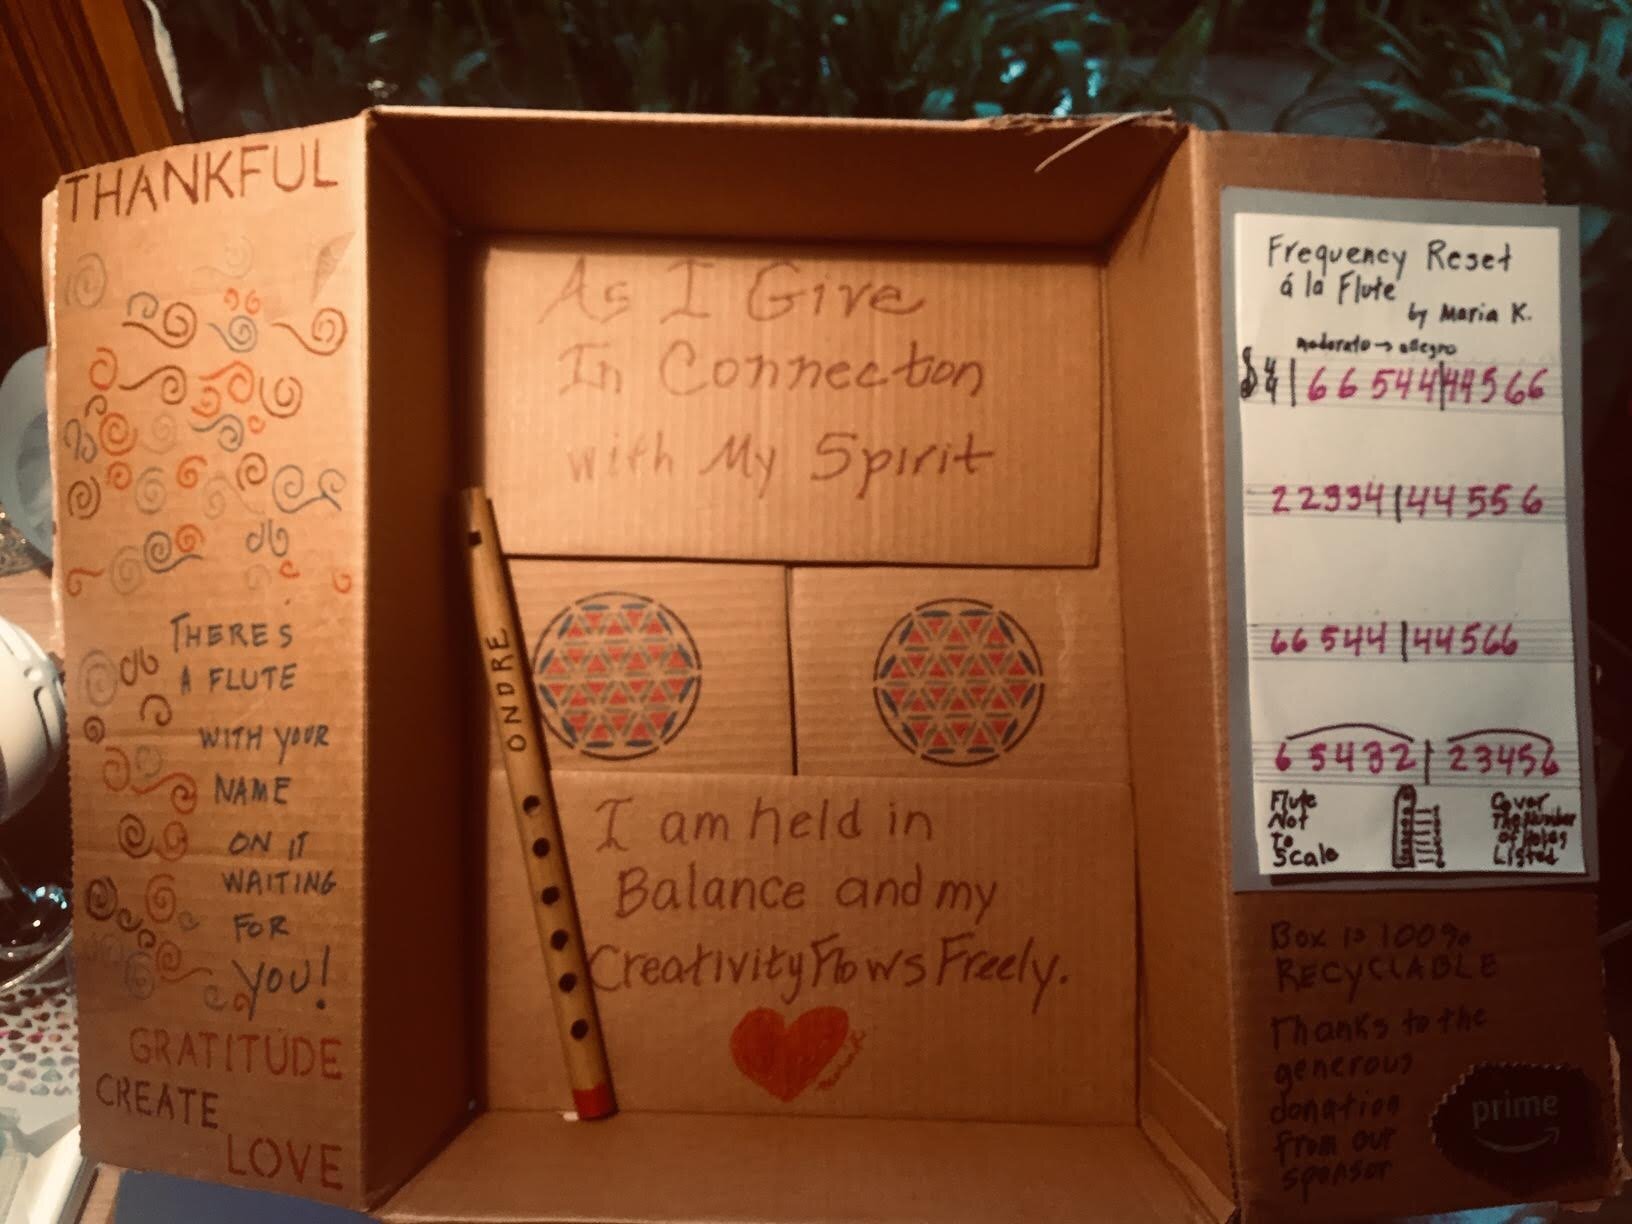 THANKFUL
THERE'S
A FLUTE
WITH YOUR
NAME
ON IT
WAITING
FOR
YOU!
GRATITUDE
CREATE
LOVE
As I Give
In Connection
with My Spirit
ONDRE
I am held in
Balance and my
Creativity Flows Freely.
Frequency Reset
á la Flute
by Maria K.
moderato → allegro
4 4 | 6 6 5 4 4 | 4 4 5 6 6
2 2 3 3 4 | 4 4 5 5 6
6 6 5 4 4 | 4 4 5 6 6
6 5 4 3 2 | 2 3 4 5 6
Flute
Not
To
Scale
Cover
The Number
of Holes
Listed
Box is 100%
RECYCLABLE
Thanks to the
generous
donation
from our
sponsor
prime